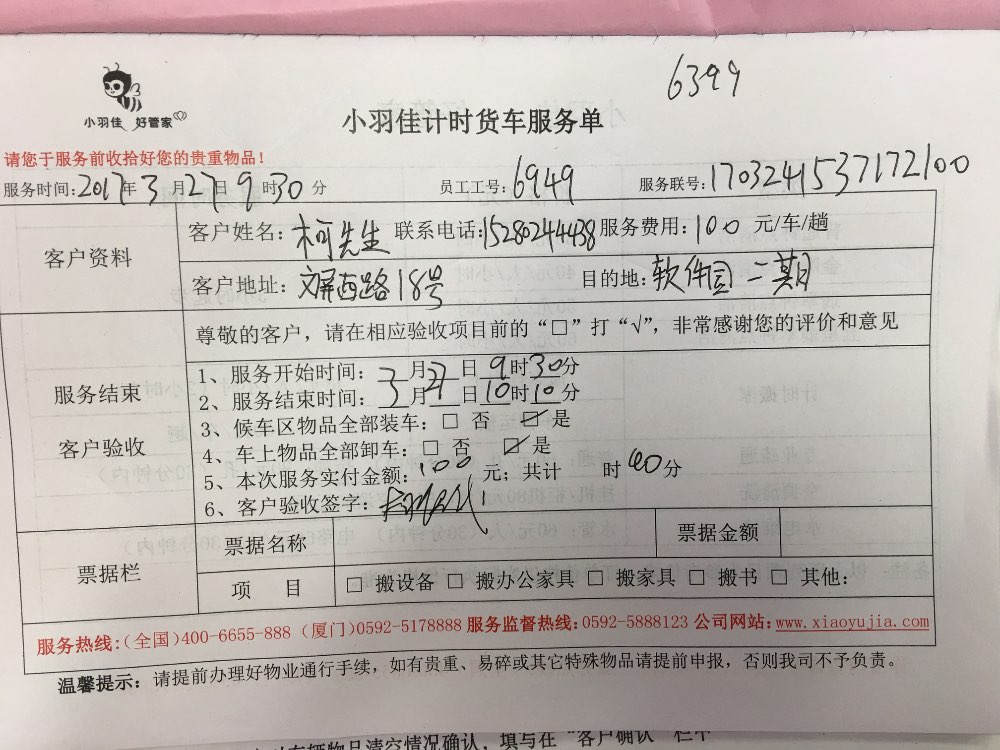 6399
小羽佳 好管家
小羽佳计时货车服务单
请您于服务前收拾好您的贵重物品！
服务时间：2017年3月27日9时30分 员工工号：6949 服务联号：17032415371722100
客户资料
客户姓名：柯先生 联系电话：15280244438 服务费用：100 元/车/趟
客户地址：文屏西路18号 目的地：软件园二期
服务结束
客户验收
尊敬的客户，请在相应验收项目前的“□”打“√”，非常感谢您的评价和意见
1、服务开始时间：3月27日9时30分
2、服务结束时间：3月 日10时10分
3、候车区物品全部装车：□ 否 ☑ 是
4、车上物品全部卸车：□ 否 ☑ 是
5、本次服务实付金额：100 元；共计 时40分
6、客户验收签字：
票据栏
票据名称 票据金额
项 目 □ 搬设备 □ 搬办公家具 □ 搬家具 □ 搬书 □ 其他：
服务热线：（全国）400-6655-888（厦门）0592-5178888 服务监督热线：0592-5888123 公司网站：www.xiaoyujia.com
温馨提示：请提前办理好物业通行手续，如有贵重、易碎或其它特殊物品请提前申报，否则我司不予负责。